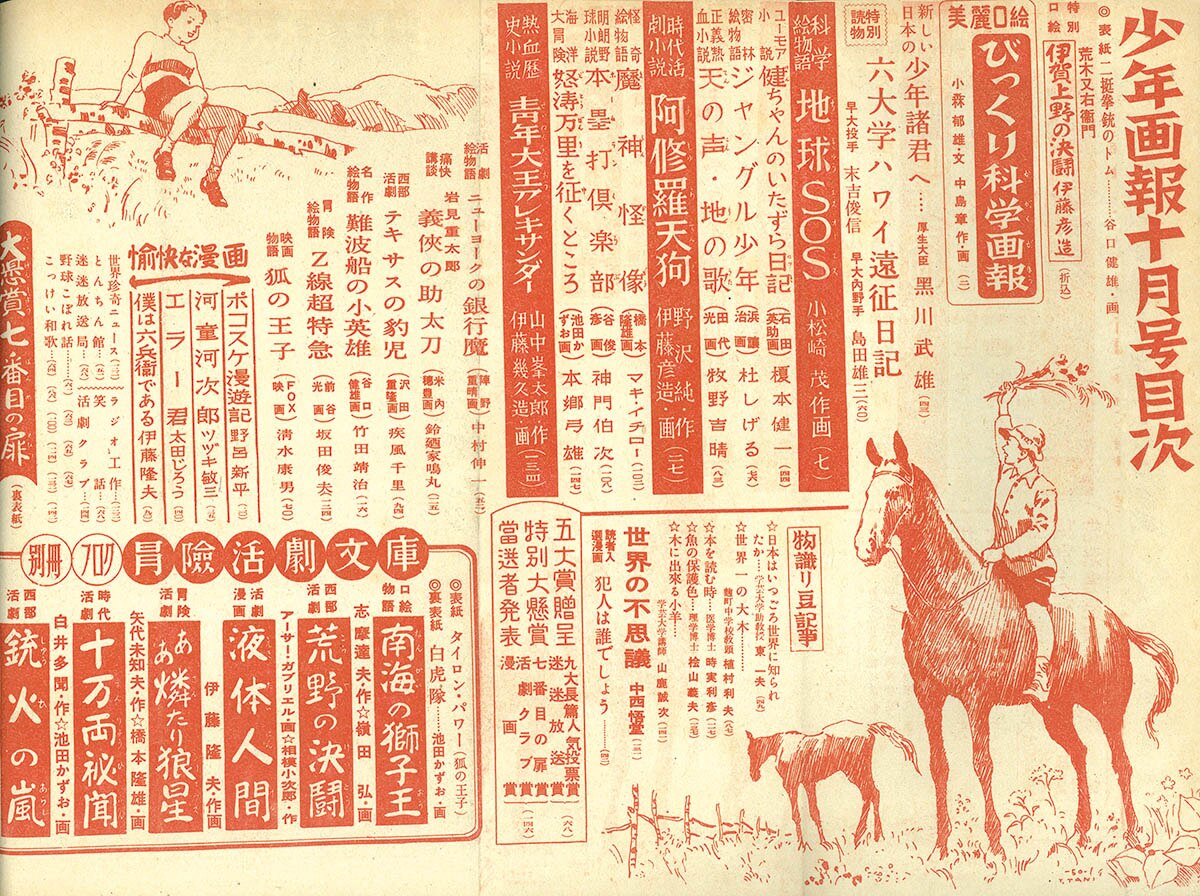 少年画報十月号目次
◎表紙二挺拳銃のトム………谷口健雄・画
特別口絵
荒木又右衞門
伊賀上野の決闘 伊藤彦造 (折込)
美麗口絵
びっくり科学画報
小森郁雄・文 中島章作・画 (二)
新しい日本の少年諸君へ……厚生大臣 黒川武雄(四三)
特別読物
六大学ハワイ遠征日記
早大投手 末吉俊信
早大内野手 島田雄二(六〇)
科学絵物語 地球SOS 小松崎茂作画(七)
ユーモア小説 健ちゃんのいたずら日記(石田英助画)榎本健一(四四)
密林絵物語 ジャングル少年(浜譲治画)杜しげる(七六)
正義熱血小説 天の声・地の歌(田代光画)牧野吉晴(八三)
時代活劇小説 阿修羅天狗 野沢純・作 伊藤彦造・画(二七)
怪奇絵物語 魔神怪像(橋本隆雄画)マキ・イチロー(一〇二)
明朗野球小説 本塁打倶楽部(谷俊彦画)神門伯次(一〇八)
海洋大冒険 怒涛万里を征くところ(池田かずお画)本郷弓雄(一四七)
熱血歴史小説 青年大王アレキサンダー 山中峯太郎・作 伊藤幾久造・画(一三四)
活劇絵物語 ニューヨークの銀行魔(陣野重晴画)中村伸一(五三)
痛快講談 岩見重太郎 義俠の助太刀(米内穂豊画)鈴廼家鳴丸(一二五)
西部活劇 テキサスの豹児(沢田重隆画)疾風千里(九四)
名作絵物語 難波船の小英雄(谷口健雄画)竹田靖治(一一六)
冒険絵物語 Z線超特急(前谷光画)坂田俊夫(一二四)
映画物語 狐の王子(FOX映画)清水康男(七〇)
愉快な漫画
ポコスケ漫遊記 野呂新平
河童河次郎 ツヅキ敏三
エラー君 太田じろう
僕は六兵衞である 伊藤隆夫
世界珍奇ニュース ラジオ工作
とんちん館 笑話
迷迷放送局 活劇クラブ
野球こぼれ話
こっけい和歌
大懸賞七番目の扉(裏表紙)
物識り豆記事
☆日本はいつごろ世界に知られたか…学芸大学助教授 東一夫(四九)
☆世界一の大木………麹町中学校教頭 植村利夫(八七)
☆本を読む時…医学博士 時実利彦
☆魚の保護色…理学博士 桧山義夫
☆木に出来る小羊…学芸大学講師 山鹿誠次
世界の不思議 中西悟堂
読者入選漫画 犯人は誰でしょう……
五大賞贈呈
特別大懸賞
当選者発表
九大長篇人気投票賞
迷迷放送賞
七番目の扉賞
活劇クラブ賞
漫画賞
(六八)
(一四六)
別冊フロク 冒險活劇文庫
◎表紙 タイロン・パワー(狐の王子)
◎裏表紙 白虎隊……池田かずお・画
口絵物語 南海の獅子王
志摩達夫・作☆嶺田弘・画
西部活劇 荒野の決闘
アーサー・ガブリエル・画☆相模小次郎・作
活劇漫画 液体人間
伊藤隆夫・作画
冒険活劇 あゝ燐たり狼星
矢代未知夫・作☆橋本隆雄・画
時代活劇 十万両祕聞
白井多聞・作☆池田かずお・画
西部活劇 銃火の嵐